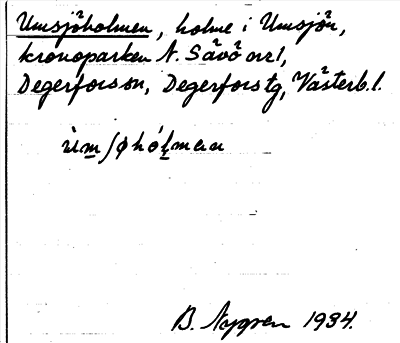 Umsjöholmen, holme i Umsjön,
kronoparken N. Sävö orel,
Degerfors sn, Degerfors tg, Västerb. l.
B. Nygren 1934.